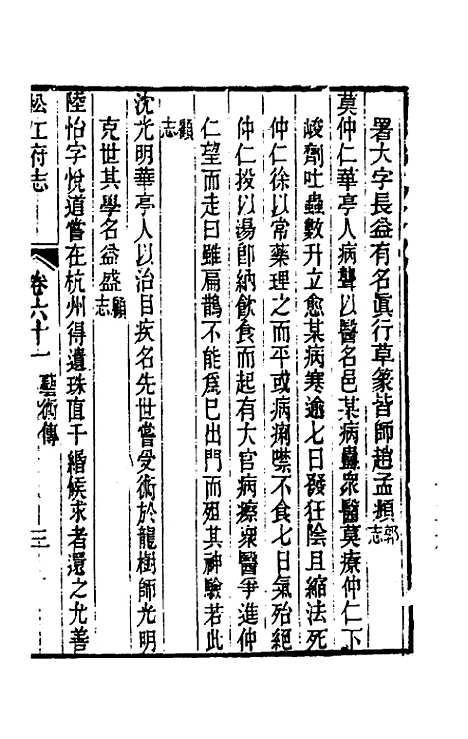 署大字長益有名眞行草篆皆師趙孟頫郭志
莫仲仁華亭人病聾以醫名邑某病蠱衆醫莫療仲仁下
峻劑吐蟲數升立愈某病寒逾七日發狂陰且縮法死
仲仁徐以常藥理之而平或病痢噤不食七日氣殆絕
仲仁投以湯卽納飮食而起有大官病瘵衆醫爭進仲
仁望而走曰雖扁鵲不能爲已出門而殂其神驗若此
顧志
沈光明華亭人以治目疾名先世嘗受術於龍樹師光明
克世其學名益盛顧志
陸怡字悅道嘗在杭州得遺珠直千緡候求者還之尤善
松江府志
卷六十一 藝術傳
三